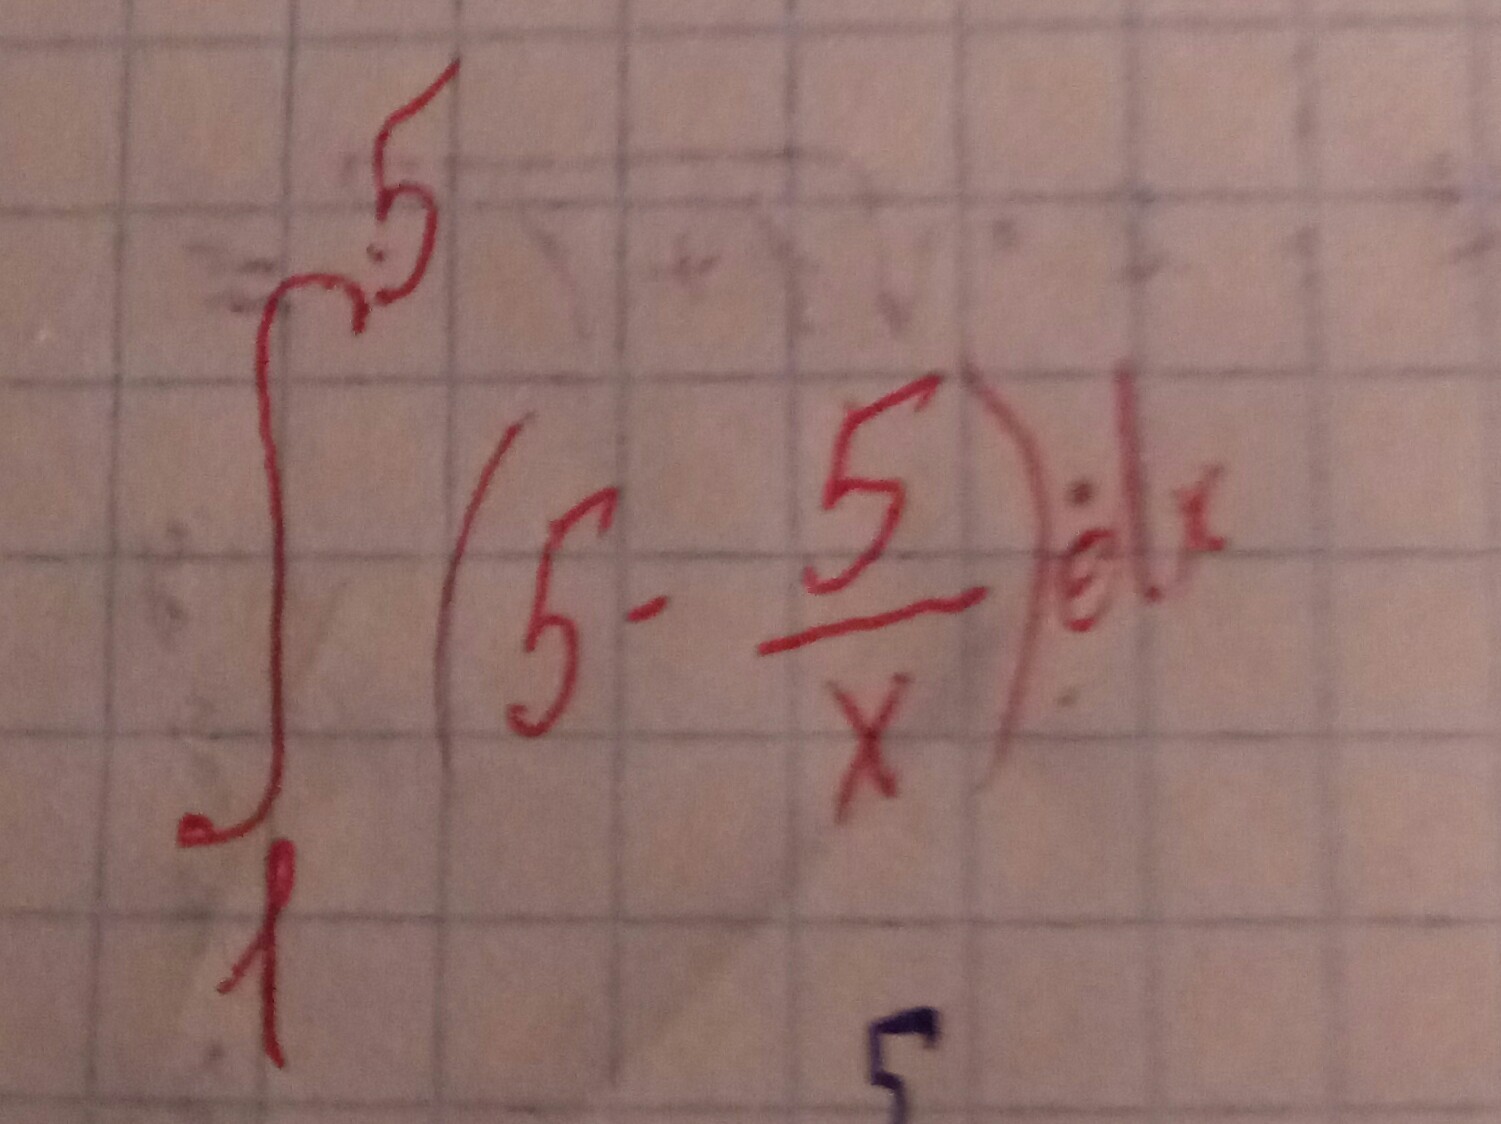 ∫₁⁵ (5 - 5/x) dx
5